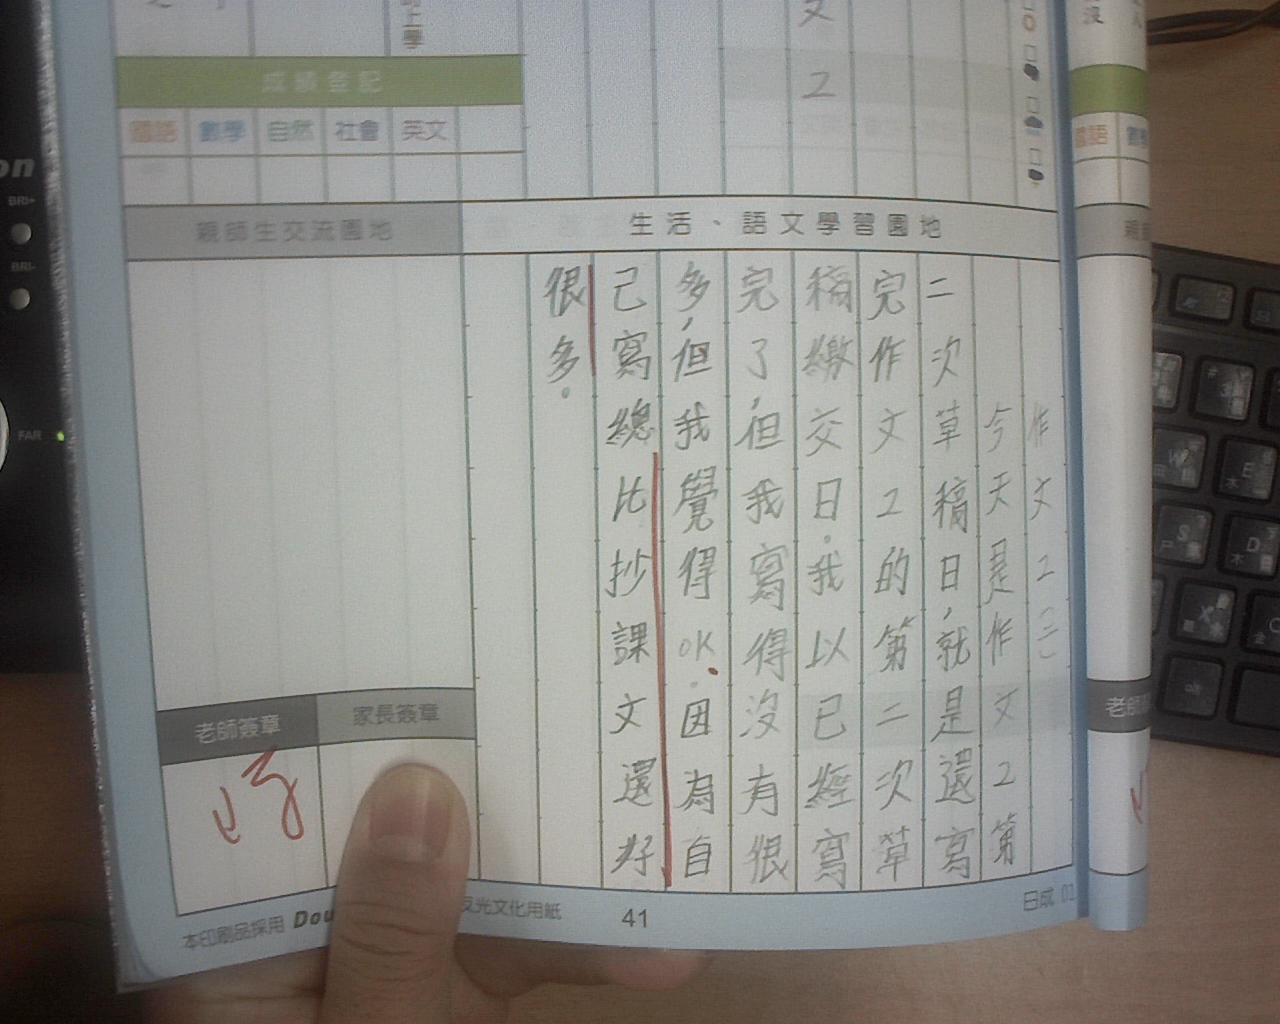 上學
文
2
成績登記
國語 數學 自然 社會 英文
國語
親師生交流園地
生活、語文學習園地
作文2(三)
今天是作文2第
二次草稿日,就是還寫
完作文2的第二次草
稿繳交日。我以已經寫
完了,但我寫得沒有很
多,但我覺得OK。因為自
己寫總比抄課文還好
很多。
老師簽章
家長簽章
老師
本印刷品採用 Dou
反光文化用紙
41
日成 01
BRI+
BRI-
FAR
on